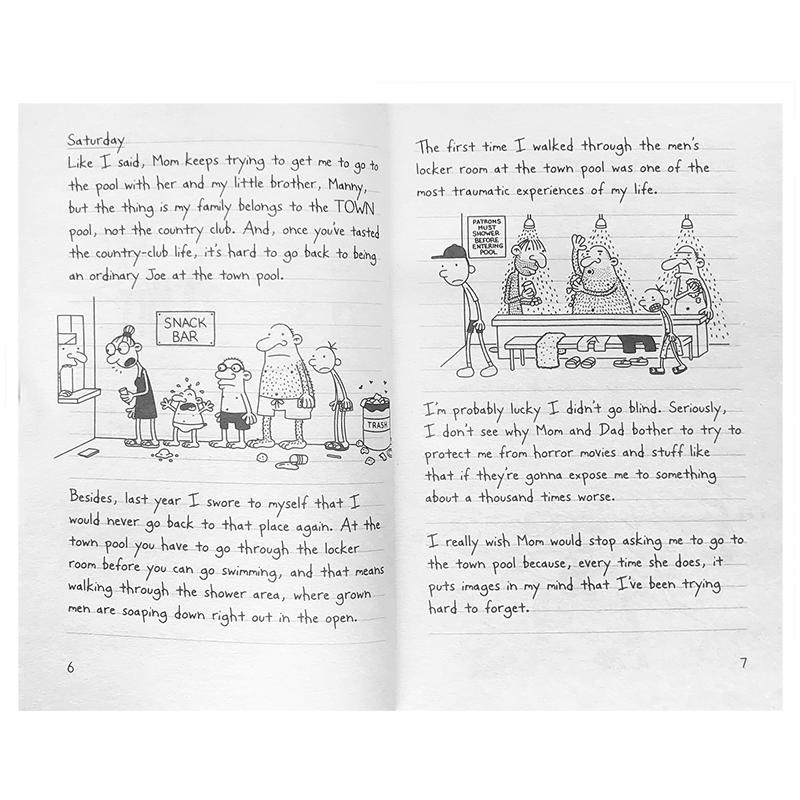 Saturday
Like I said, Mom keeps trying to get me to go to
the pool with her and my little brother, Manny,
but the thing is my family belongs to the TOWN
pool, not the country club. And, once you've tasted
the country-club life, it's hard to go back to being
an ordinary Joe at the town pool.
SNACK
BAR
TRASH
Besides, last year I swore to myself that I
would never go back to that place again. At the
town pool you have to go through the locker
room before you can go swimming, and that means
walking through the shower area, where grown
men are soaping down right out in the open.
6
The first time I walked through the men's
locker room at the town pool was one of the
most traumatic experiences of my life.
PATRONS
MUST
SHOWER
BEFORE
ENTERING
POOL
I'm probably lucky I didn't go blind. Seriously,
I don't see why Mom and Dad bother to try to
protect me from horror movies and stuff like
that if they're gonna expose me to something
about a thousand times worse.
I really wish Mom would stop asking me to go to
the town pool because, every time she does, it
puts images in my mind that I've been trying
hard to forget.
7